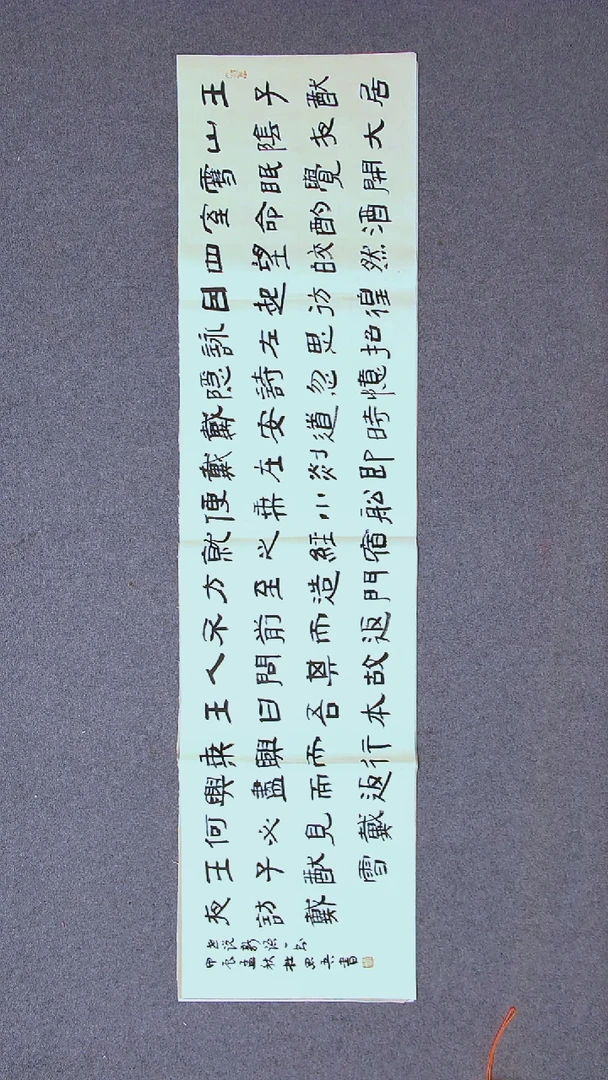 王子猷居
山陰夜大
雪眠覺開
室命酌酒
四望皎然
因起彷徨
詠左思招
隱詩忽憶
戴安道時
戴在剡即
便乘小船
就之經宿
方至造門
不前而返
人問其故
王曰吾本
乘興而行
興盡而返
何必見戴
王子猷雪
夜訪戴
世说新语一则
甲辰孟秋杜書